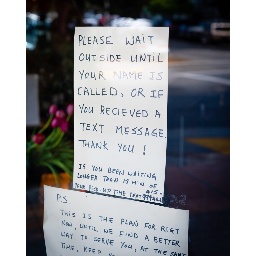 PLEASE WAIT
OUTSIDE UNTIL
YOUR NAME IS
CALLED, OR IF
YOU RECIEVED A
TEXT MESSAGE.
THANK YOU!
IF YOU BEEN WAITING
LONGER THEN 15 MIN OF
PS
THIS IS THE PLAN FOR RIGT
NOW, UNTIL WE FIND A BETTER
WAY TO SERVE YOU, AT THE SAME
TIME, KEEP